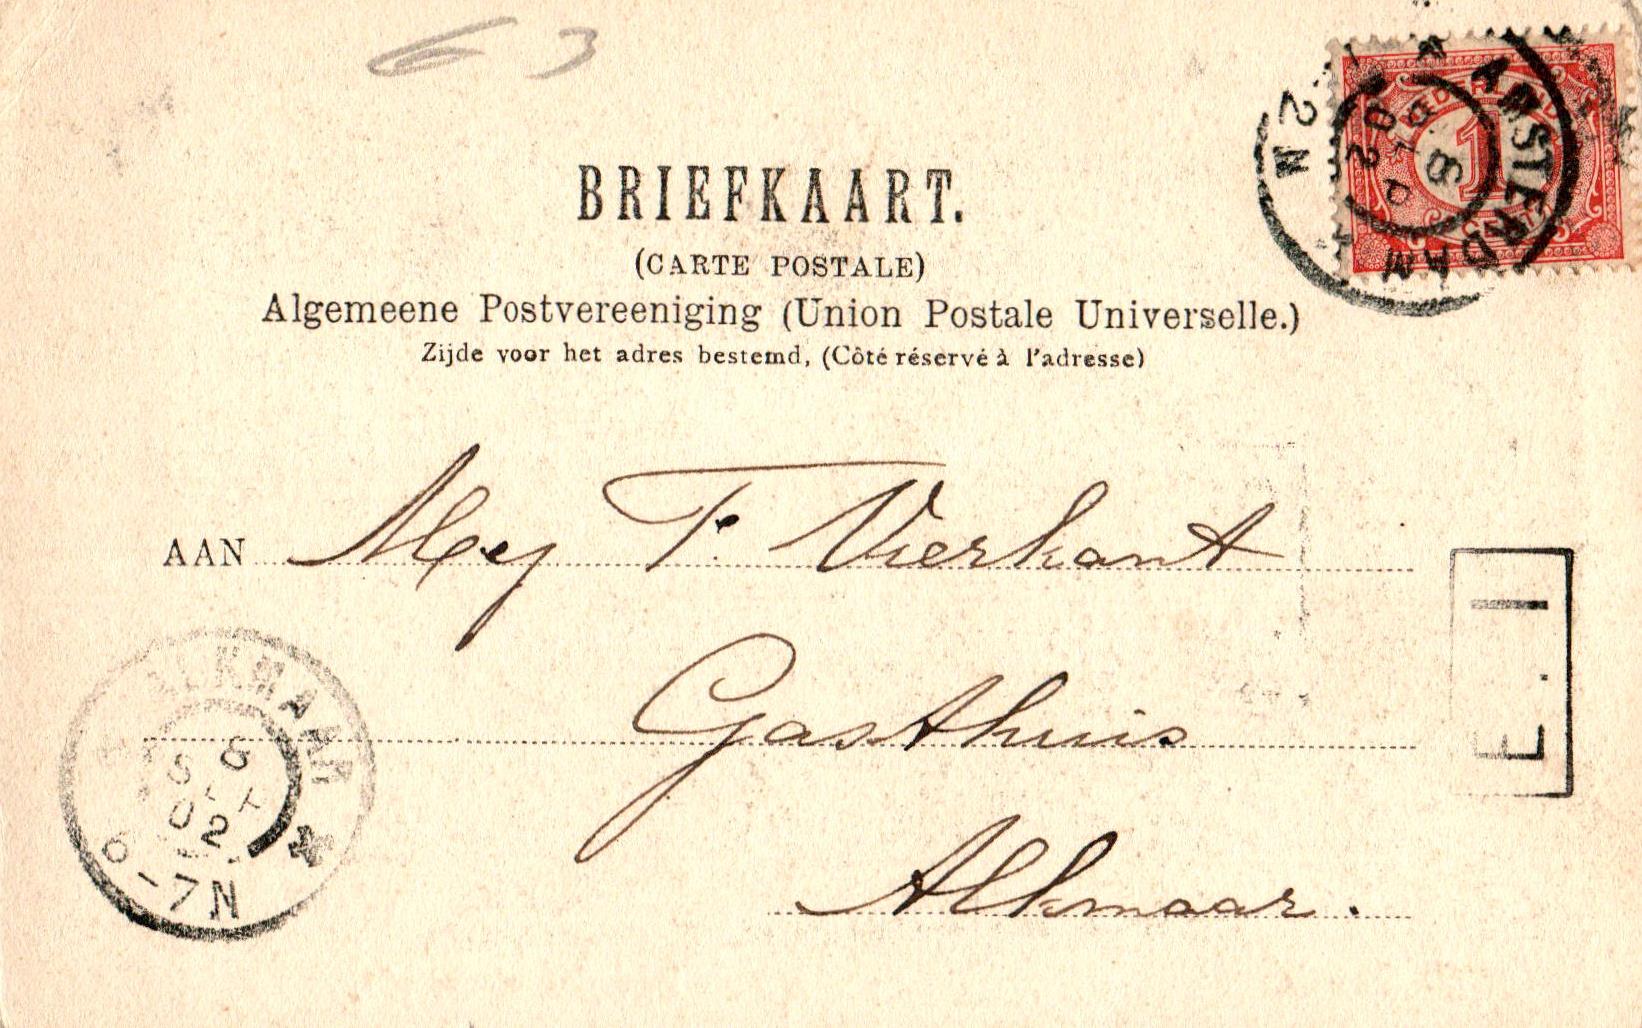 63
NEDERLAND
1
CENT
AMSTERDAM
2 N
BRIEFKAART.
(CARTE POSTALE)
Algemeene Postvereeniging (Union Postale Universelle.)
Zijde voor het adres bestemd, (Côté réservé à l'adresse)
AAN Mej T. Vierkant
Gasthuis
Alkmaar.
ALKMAAR
02
6-7N